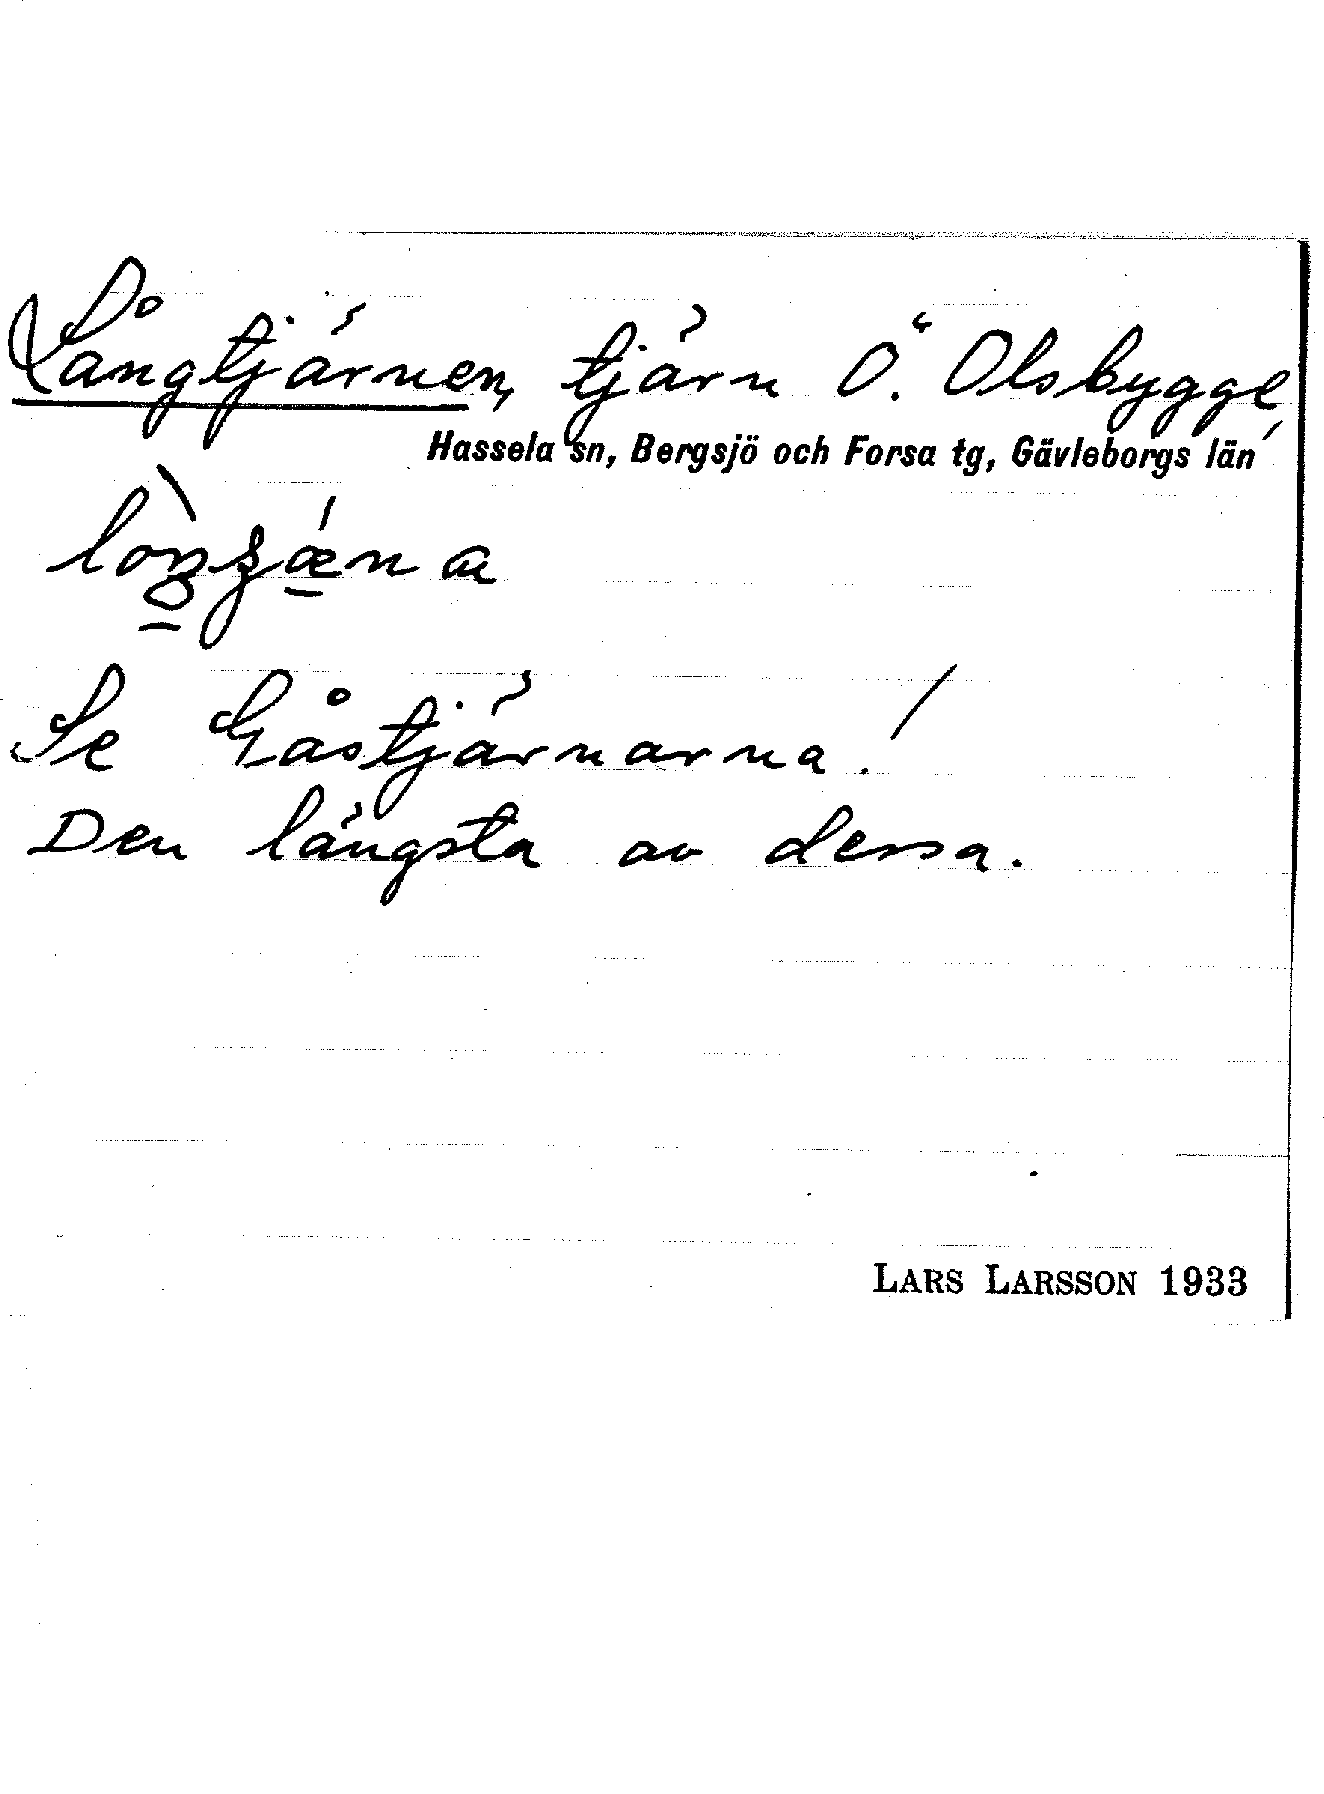 Långtjärnen, tjärn Ö. Olsbygge,
Hassela sn, Bergsjö och Forsa tg, Gävleborgs län
Se Gåstjärnarna!
Den längsta av dessa.
LARS LARSSON 1933